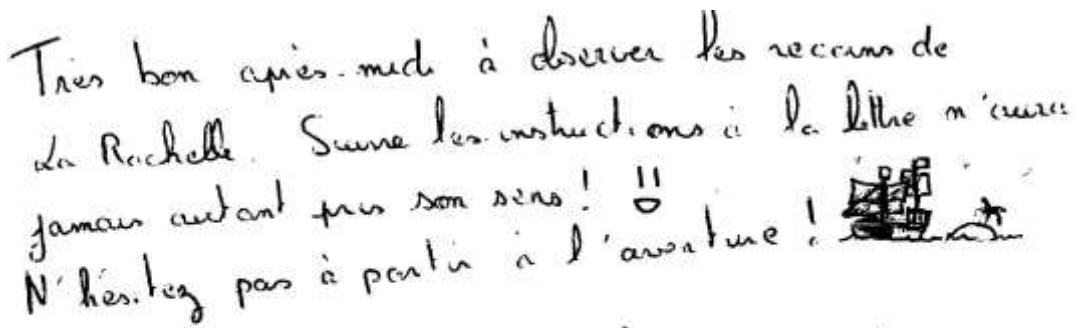 Très bon après-midi à observer les recoins de
La Rochelle. Suivre les instructions à la lettre n'aura
jamais autant pris son sens !
N'hésitez pas à partir à l'aventure !